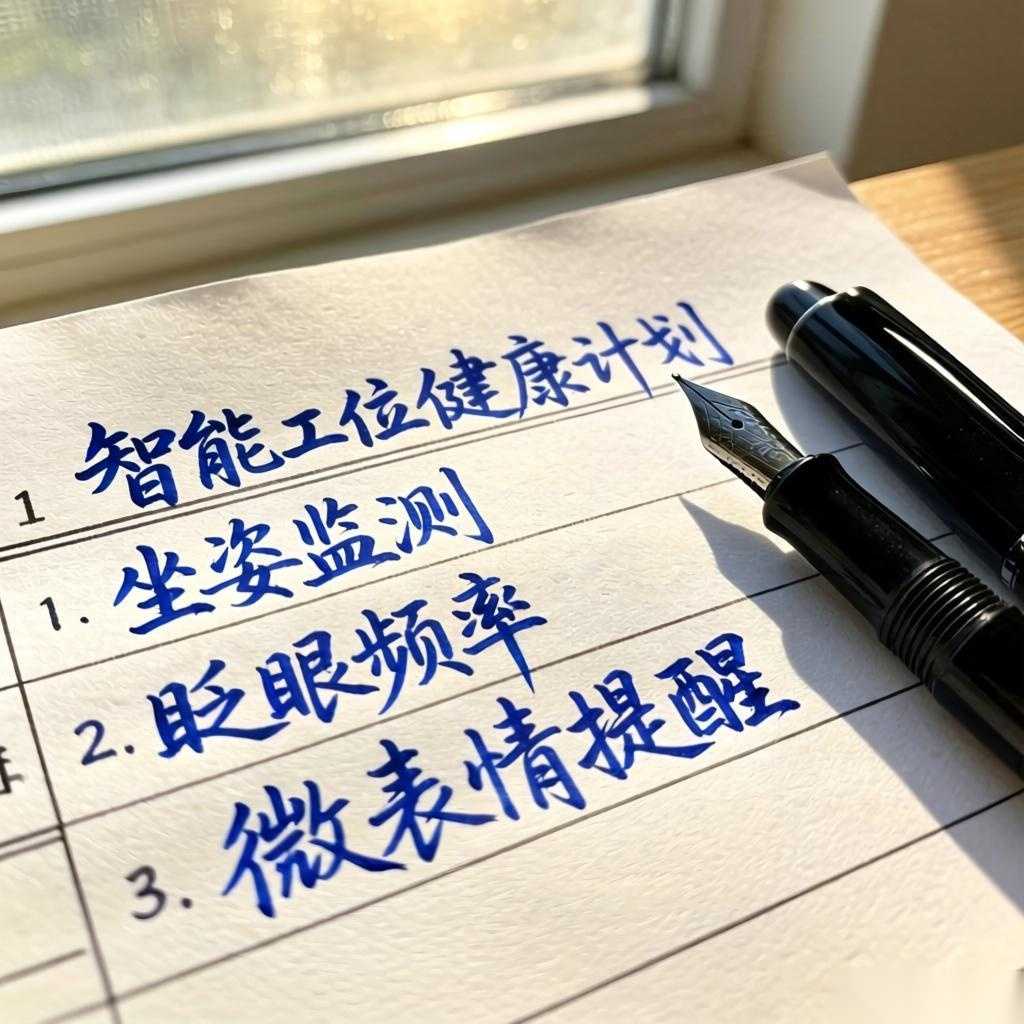 1 智能工位健康计划
1. 坐姿监测
2. 眨眼频率
3. 微表情提醒